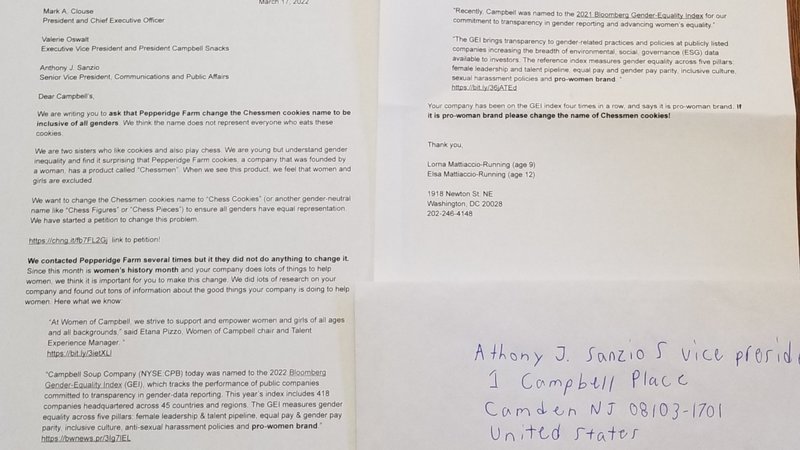 March 17, 2022
Mark A. Clouse
President and Chief Executive Officer
Valerie Oswalt
Executive Vice President and President Campbell Snacks
Anthony J. Sanzio
Senior Vice President, Communications and Public Affairs
Dear Campbell's,
We are writing you to ask that Pepperidge Farm change the Chessmen cookies name to be
inclusive of all genders. We think the name does not represent everyone who eats these
cookies.
We are two sisters who like cookies and also play chess. We are young but understand gender
inequality and find it surprising that Pepperidge Farm cookies, a company that was founded by
a woman, has a product called "Chessmen". When we see this product, we feel that women and
girls are excluded.
We want to change the Chessmen cookies name to "Chess Cookies" (or another gender-neutral
name like "Chess Figures" or "Chess Pieces") to ensure all genders have equal representation.
We have started a petition to change this problem.
https://chng.it/fb7FL2Gj link to petition!
We contacted Pepperidge Farm several times but it they did not do anything to change it.
Since this month is women's history month and your company does lots of things to help
women, we think it is important for you to make this change. We did lots of research on your
company and found out tons of information about the good things your company is doing to help
women. Here what we know:
"At Women of Campbell, we strive to support and empower women and girls of all ages
and all backgrounds," said Etana Pizzo, Women of Campbell chair and Talent
Experience Manager. "
https://bit.ly/3ietXLl
"Campbell Soup Company (NYSE:CPB) today was named to the 2022 Bloomberg
Gender-Equality Index (GEI), which tracks the performance of public companies
committed to transparency in gender-data reporting. This year's index includes 418
companies headquartered across 45 countries and regions. The GEI measures gender
equality across five pillars: female leadership & talent pipeline, equal pay & gender pay
parity, inclusive culture, anti-sexual harassment policies and pro-women brand."
https://bwnews.pr/3Ig7IEL
"Recently, Campbell was named to the 2021 Bloomberg Gender-Equality Index for our
commitment to transparency in gender reporting and advancing women's equality."
"The GEI brings transparency to gender-related practices and policies at publicly listed
companies increasing the breadth of environmental, social, governance (ESG) data
available to investors. The reference index measures gender equality across five pillars:
female leadership and talent pipeline, equal pay and gender pay parity, inclusive culture,
sexual harassment policies and pro-women brand. "
https://bit.ly/36jATEd
Your company has been on the GEI index four times in a row, and says it is pro-woman brand. If
it is pro-woman brand please change the name of Chessmen cookies!
Thank you,
Lorna Mattiaccio-Running (age 9)
Elsa Mattiaccio-Running (age 12)
1918 Newton St. NE
Washington, DC 20028
202-246-4148
Athony J. Sanzio S vice presid
1 Campbell Place
Camden NJ 08103-1701
United States